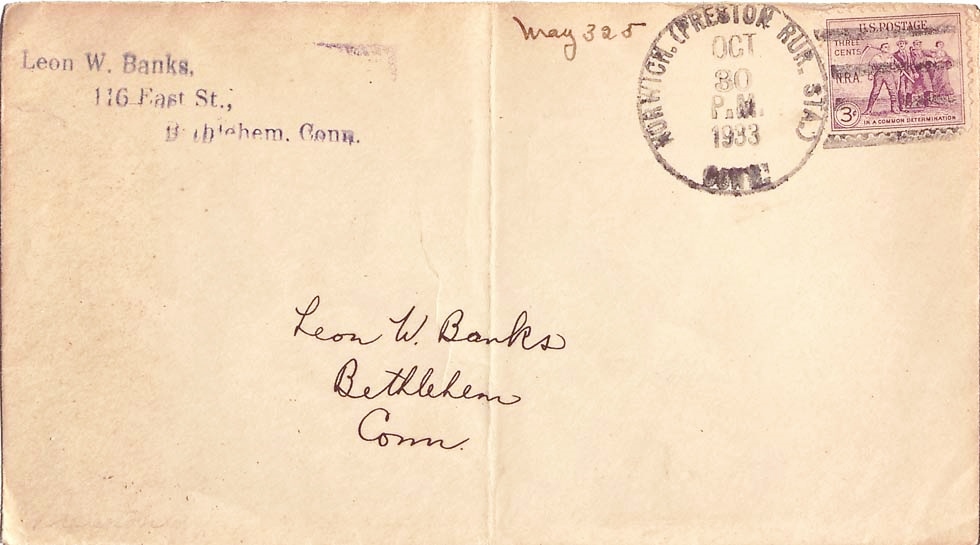 Leon W. Banks,
116 East St.,
Bethlehem, Conn.
May 325
NORWICH. (PRESTON RUR. STA.)
OCT
30
P.M.
1933
CONN.
U.S. POSTAGE
THREE
CENTS
NRA
3¢
IN A COMMON DETERMINATION
Leon W. Banks
Bethlehem
Conn.